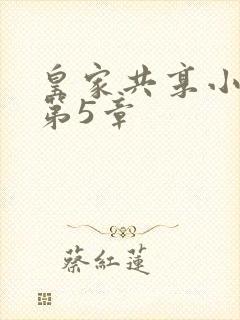 皇家共享小
第5章
蔡紅蓮